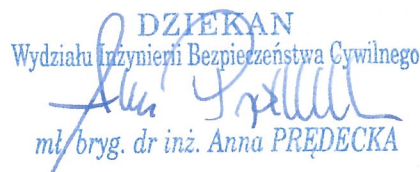 DZIEKAN
Wydziału Inżynierii Bezpieczeństwa Cywilnego
mł. bryg. dr inż. Anna PRĘDECKA